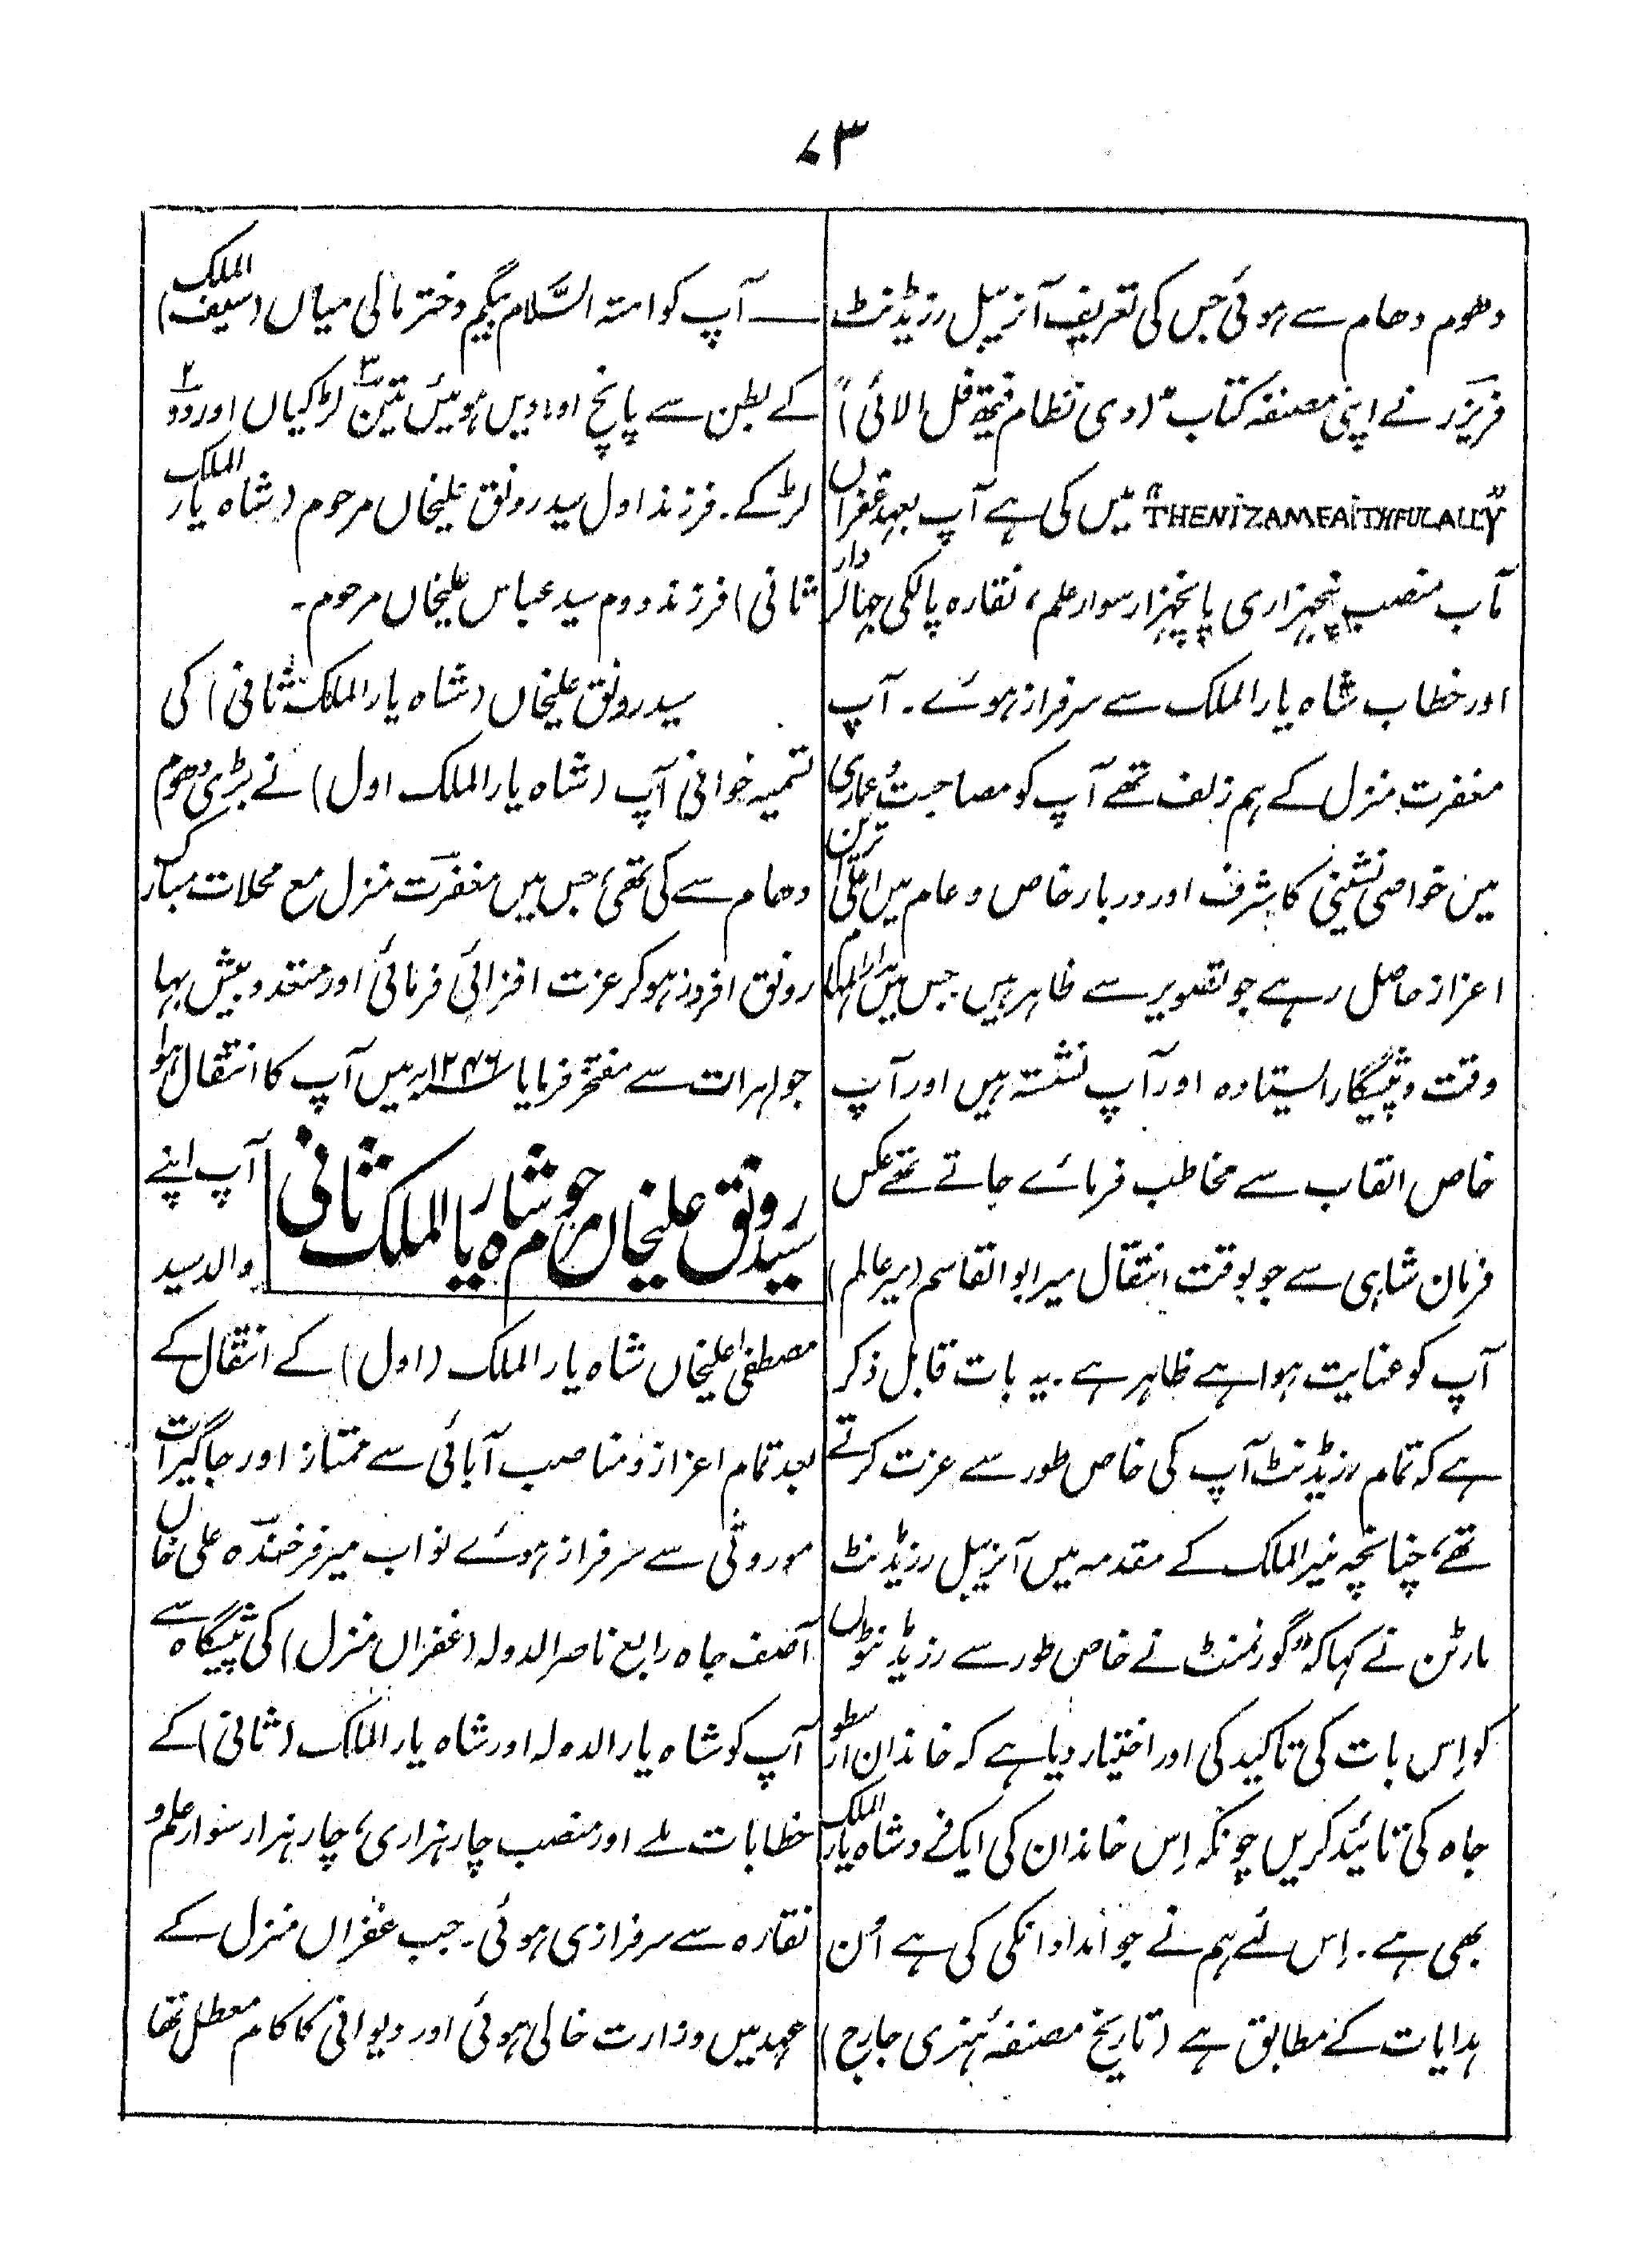 ۷۳
دھوم دھام سے ہوئی جس کی تعریف آنریبل رزیڈنٹ
فریزر نے اپنی مصنفہ کتاب "(دی نظام فیتھ فل الائی)"
"THE NIZAM FAITHFUL ALLY" میں کی ہے آپ بعہد غفراں
مآب منصب پنجہزاری پانچہزار سوار علم، نقارہ پالکی جھالر دار
اور خطاب شاہ یار الملک سے سرفراز ہوئے۔ آپ
مغفرت منزل کے ہم زلف تھے آپ کو مصاحبت و عماری
میں خواصی نشینی کا شرف اور دربار خاص و عام میں اعلیٰ ترین
اعزاز حاصل رہے جو تصویر سے ظاہر ہیں جس میں مدار المہام
وقت و پیشکار ایستادہ اور آپ نشستہ ہیں اور آپ
خاص القاب سے مخاطب فرمائے جاتے تھے عکس
فرمان شاہی سے جو بوقت انتقال میر ابو القاسم (میر عالم)
آپ کو عنایت ہوا ہے ظاہر ہے۔ یہ بات قابل ذکر
ہے کہ تمام رزیڈنٹ آپ کی خاص طور سے عزت کرتے
تھے، چنانچہ منیر الملک کے مقدمہ میں آنریبل رزیڈنٹ
مارٹن نے کہا کہ "گورنمنٹ نے خاص طور سے رزیڈنٹوں
کو اِس بات کی تاکید کی اور اختیار دیا ہے کہ خاندان ارسطو
جاہ کی تائید کریں چونکہ اِس خاندان کی ایک فرد شاہ یار الملک
بھی ہے۔ اِس لئے ہم نے جو امداد انکی کی ہے اُن
ہدایات کے مطابق ہے (تاریخ مصنفۂ ہنری جارج)
— آپ کو امتہ السَّلام بیگم دختر مالی میاں (سیف الملک)
کے بطن سے پانچ اولادیں ہوئیں تین ۳ لڑکیاں اور دو ۲
لڑکے۔ فرزند اول سید رونق علیخاں مرحوم (شاہ یار الملک
ثانی) فرزند دوم سید عباس علیخاں مرحوم۔
سید رونق علیخاں (شاہ یار الملک ثانی) کی
تسمیہ خوانی آپ (شاہ یار الملک اول) نے بڑی دھوم
دھام سے کی تھی، جس میں مغفرت منزل مع محلات مبارک
رونق افروز ہوکر عزت افزائی فرمائی اور متعدد بیش بہا
جواہرات سے مفتخر فرمایا ۱۲۴۶ھ میں آپ کا انتقال ہوا
سید رونق علیخاں مرحوم شاہ یار الملک ثانی
آپ اپنے
والد سید
مصطفیٰ علیخاں شاہ یار الملک (اول) کے انتقال کے
بعد تمام اعزاز و مناصب آبائی سے ممتاز اور جاگیرات
موروثی سے سرفراز ہوئے نواب میر فرخندہ علی خاں
آصف جاہ رابع ناصر الدولہ (غفراں منزل) کی پیشگاہ سے
آپ کو شاہ یار الدولہ اور شاہ یار الملک (ثانی) کے
خطابات ملے اور منصب چار ہزاری، چار ہزار سوار علم و
نقارہ سے سرفرازی ہوئی۔ جب غفراں منزل کے
عہد میں وزارت خالی ہوئی اور دیوانی کا کام معطل تھا